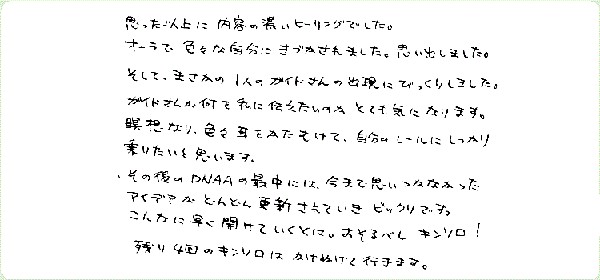 思った以上に内容の濃いヒーリングでした。
オーラで色々な自分にきづかされました。思い出しました。
そして、まさかの1人のガイドさんの出現にびっくりしました。
ガイドさんが何を私に伝えたいのか とても気になります。
瞑想なり、色々 耳をかたむけて、自分のレールにしっかり
乗りたいと思います。
・その後のDNAAの最中には、今まで思いつかなかった
アイデアがどんどん更新されていき ビックリです。
こんなに早く開けていくとは。おそるべし キンソロ!
残り4回のキンソロは かけぬけて行きます。